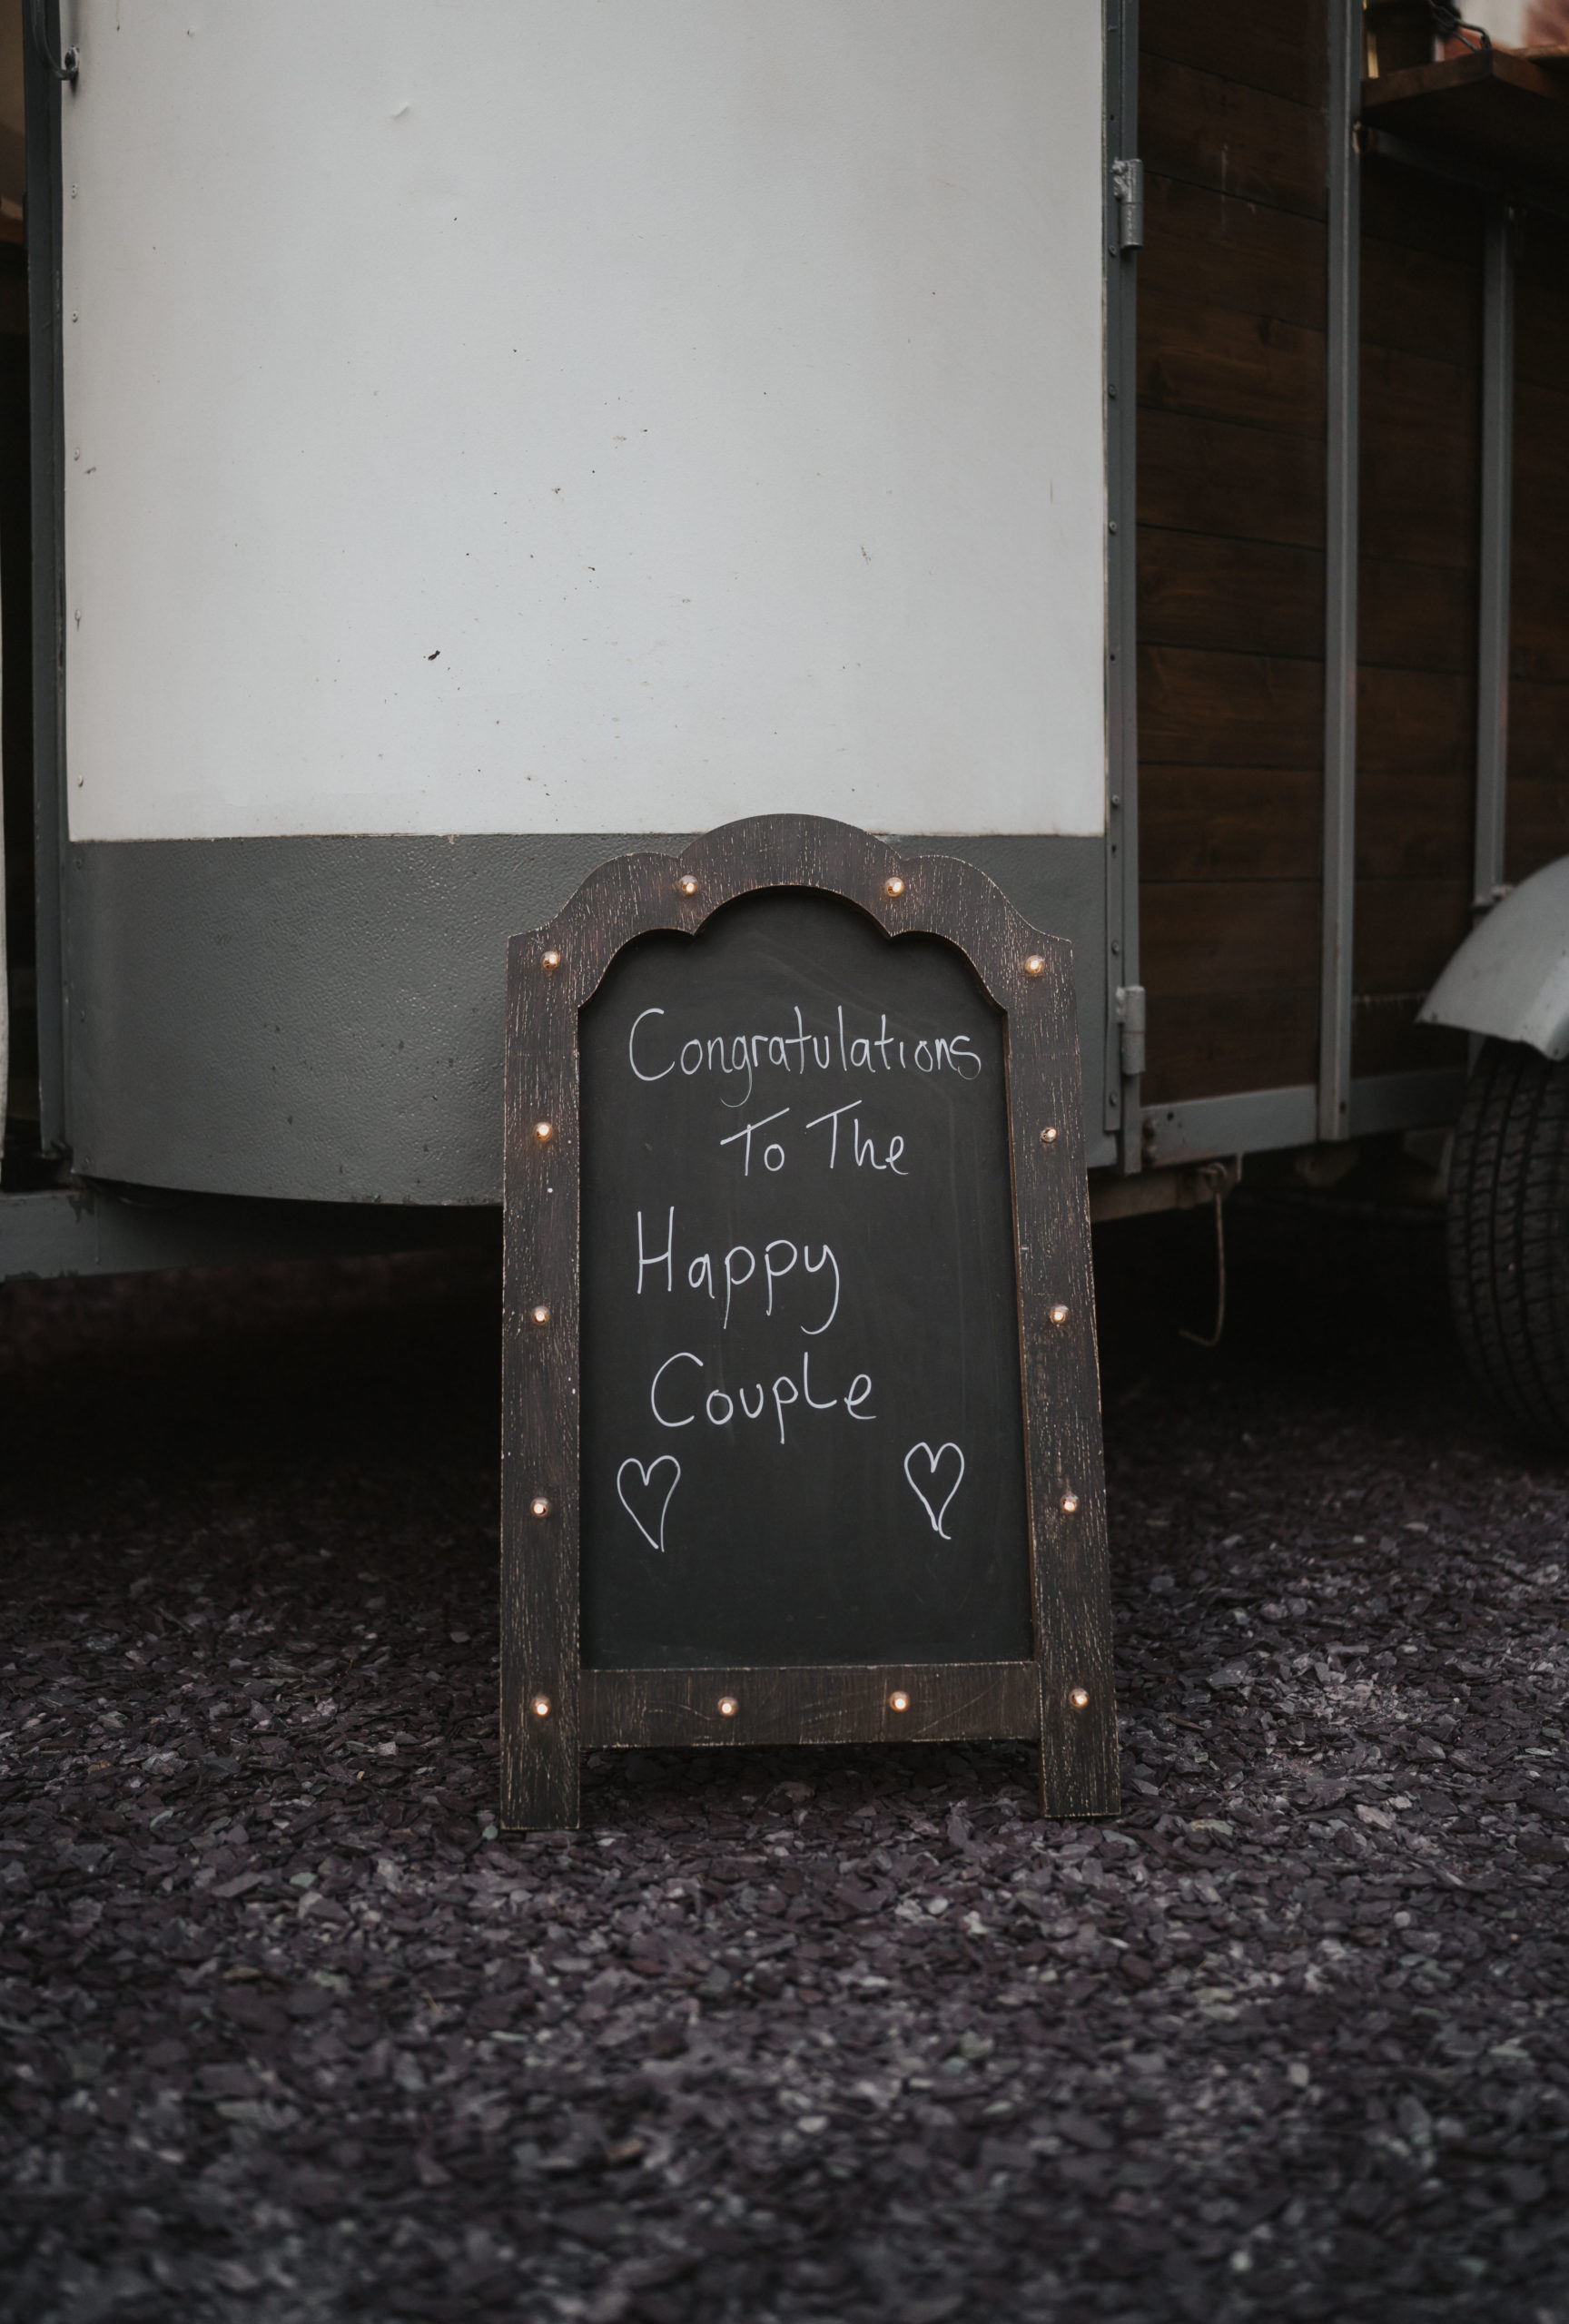 Congratulations
To The
Happy
Couple